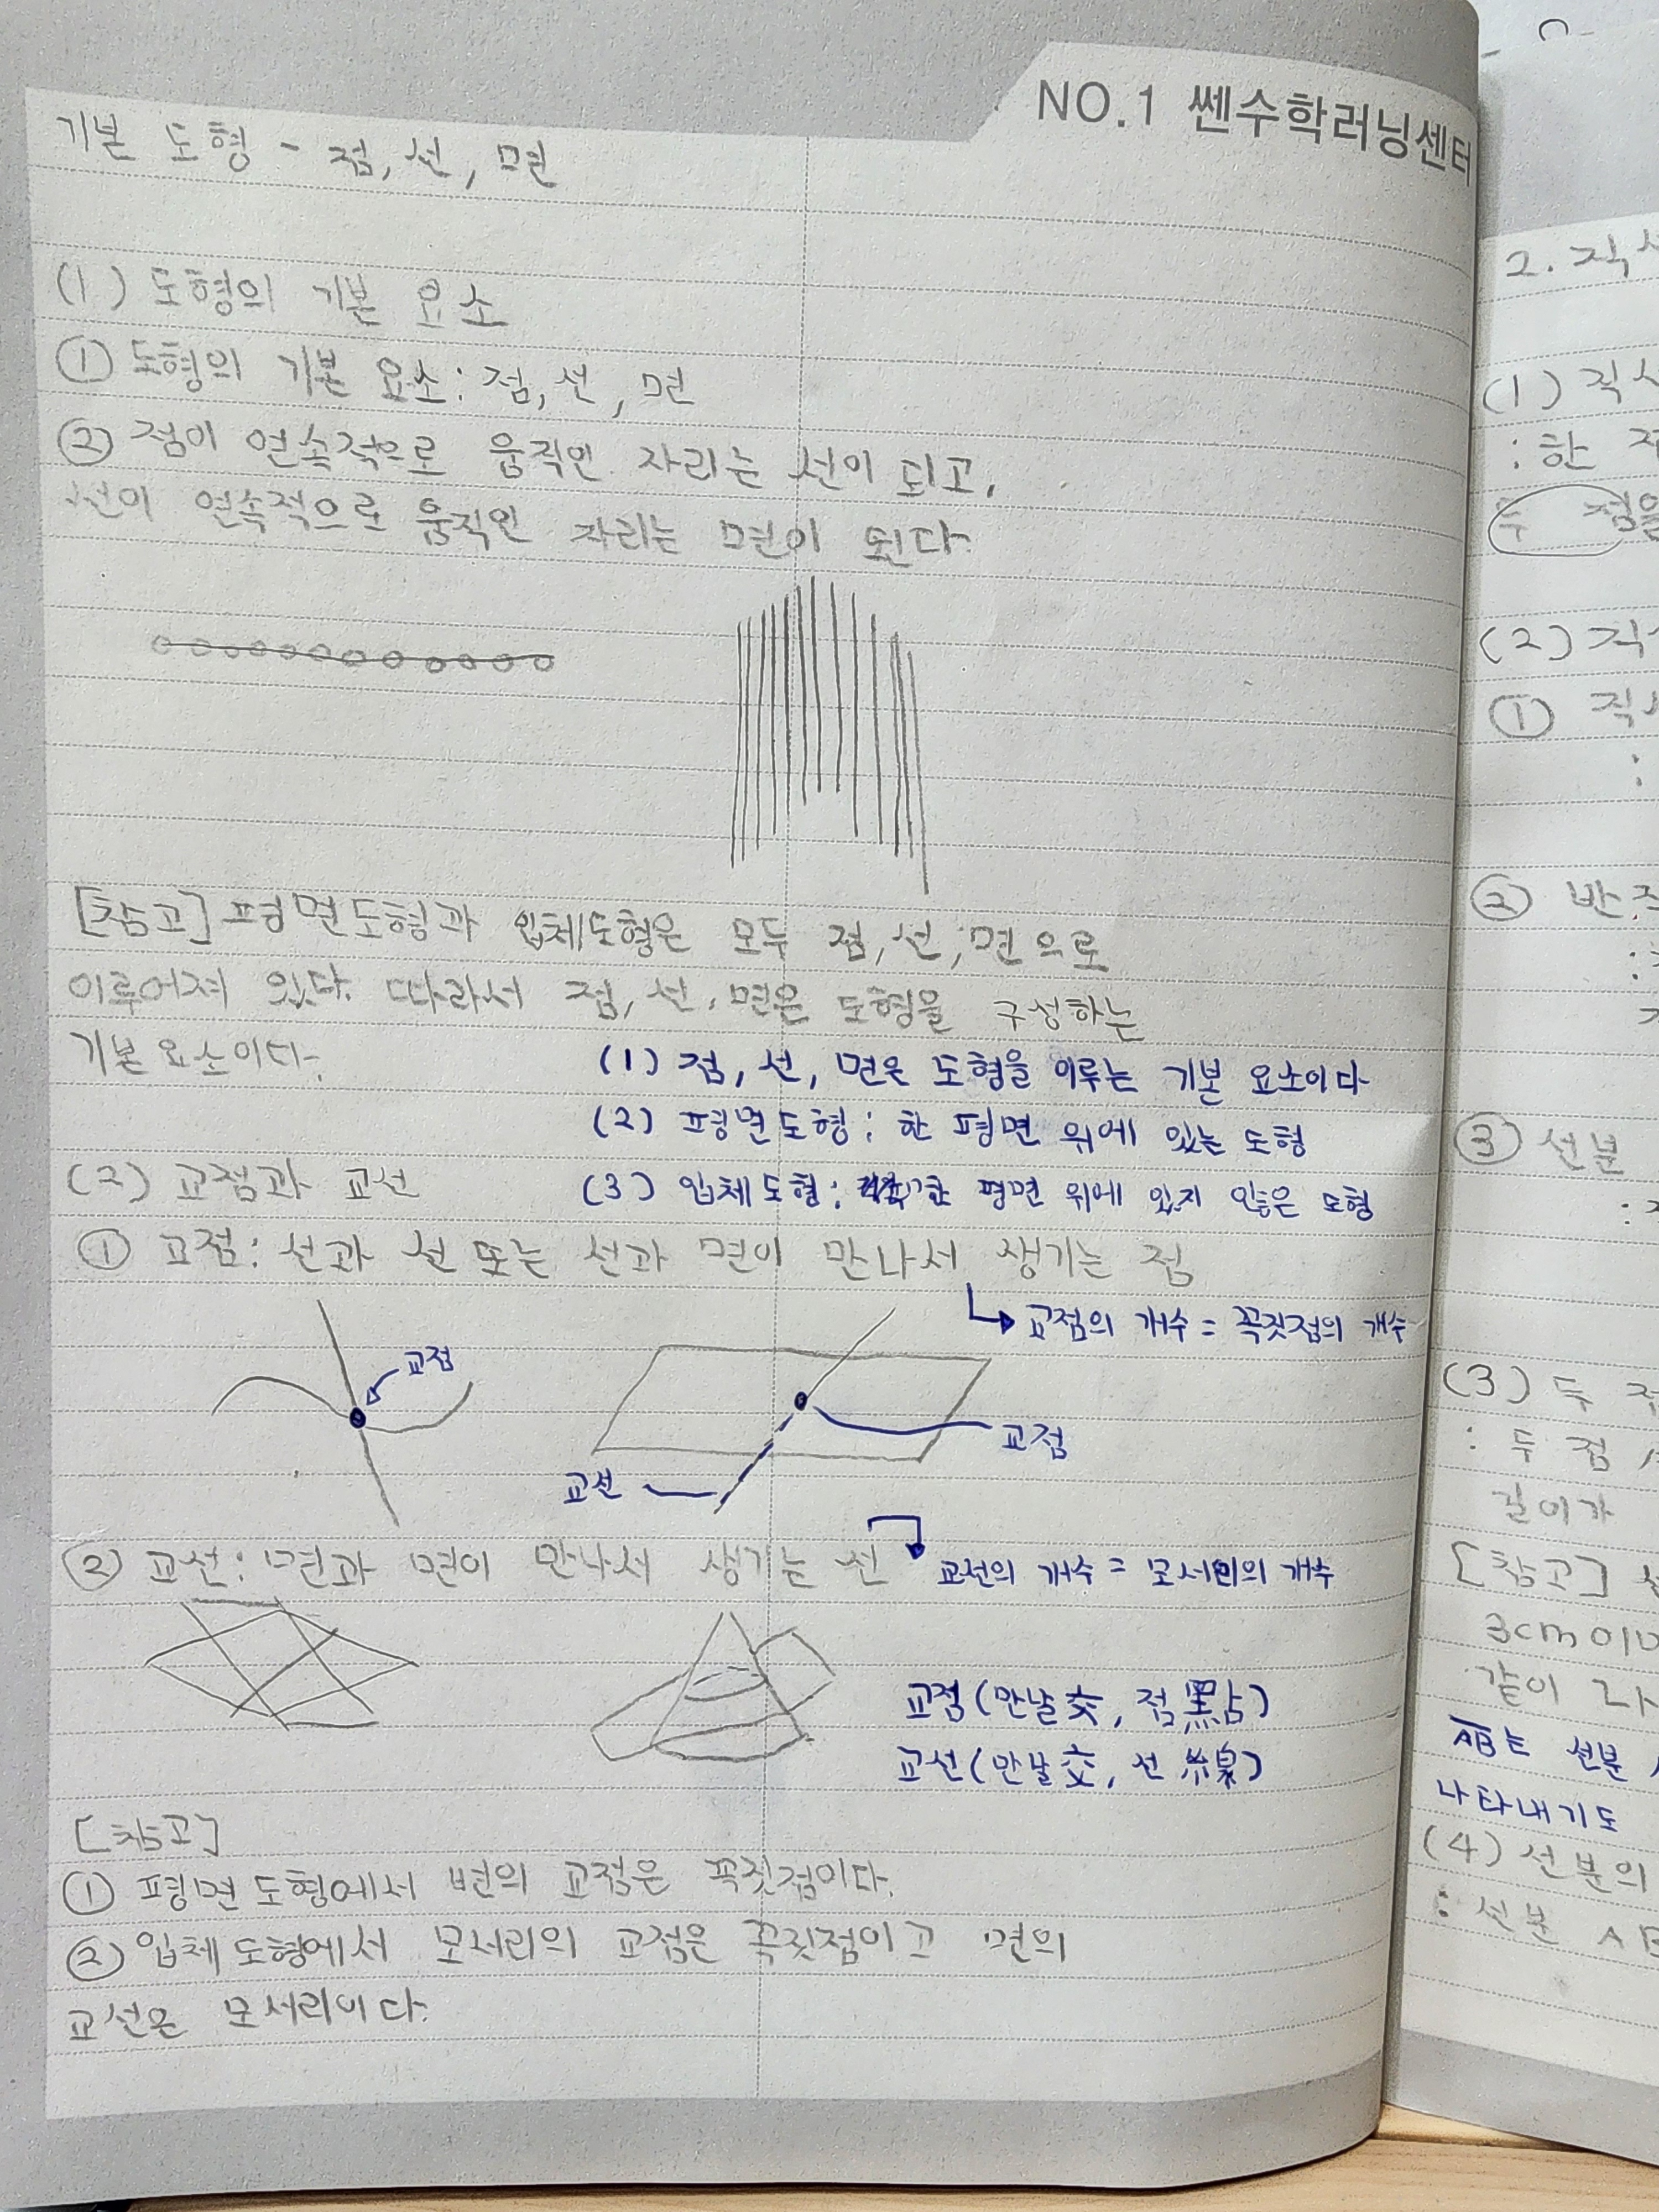 NO.1 쎈수학러닝센터
기본 도형 - 점, 선, 면
(1) 도형의 기본 요소
① 도형의 기본 요소: 점, 선, 면
② 점이 연속적으로 움직인 자리는 선이 되고,
선이 연속적으로 움직인 자리는 면이 된다.
[참고] 평면도형과 입체도형은 모두 점, 선, 면으로
이루어져 있다. 따라서 점, 선, 면은 도형을 구성하는
기본 요소이다.
(1) 점, 선, 면은 도형을 이루는 기본 요소이다
(2) 평면도형: 한 평면 위에 있는 도형
(3) 입체도형: 한 평면 위에 있지 않은 도형
(2) 교점과 교선
① 교점: 선과 선 또는 선과 면이 만나서 생기는 점
교점의 개수 = 꼭짓점의 개수
교점
교점
교선
② 교선: 면과 면이 만나서 생기는 선
교선의 개수 = 모서리의 개수
교점(만날 交, 점 點)
교선(만날 交, 선 線)
[참고]
① 평면도형에서 변의 교점은 꼭짓점이다.
② 입체도형에서 모서리의 교점은 꼭짓점이고 면의
교선은 모서리이다.
2.
(1)
: 한
두 점을
(2)
①
:
②
③ 선분
(3) 두
: 두 점
길이가
[참고]
3cm
같이
AB는 선분
나타내기도
(4) 선분의
: 선분